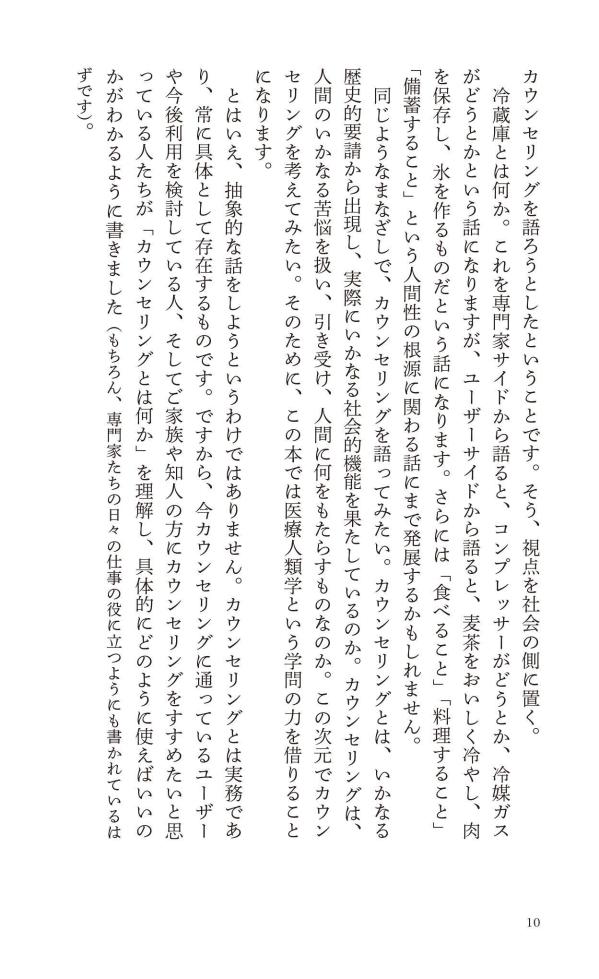 カウンセリングを語ろうとしたということです。そう、視点を社会の側に置く。
　冷蔵庫とは何か。これを専門家サイドから語ると、コンプレッサーがどうとか、冷媒ガス
がどうとかという話になりますが、ユーザーサイドから語ると、麦茶をおいしく冷やし、肉
を保存し、氷を作るものだという話になります。さらには「食べること」「料理すること」
「備蓄すること」という人間性の根源に関わる話にまで発展するかもしれません。
　同じようなまなざしで、カウンセリングを語ってみたい。カウンセリングとは、いかなる
歴史的要請から出現し、実際にいかなる社会的機能を果たしているのか。カウンセリングは、
人間のいかなる苦悩を扱い、引き受け、人間に何をもたらすものなのか。この次元でカウン
セリングを考えてみたい。そのために、この本では医療人類学という学問の力を借りること
になります。
　とはいえ、抽象的な話をしようというわけではありません。カウンセリングとは実務であ
り、常に具体として存在するものです。ですから、今カウンセリングに通っているユーザー
や今後利用を検討している人、そしてご家族や知人の方にカウンセリングをすすめたいと思
っている人たちが「カウンセリングとは何か」を理解し、具体的にどのように使えばいいの
かがわかるように書きました（もちろん、専門家たちの日々の仕事の役に立つようにも書かれているは
ずです）。
10